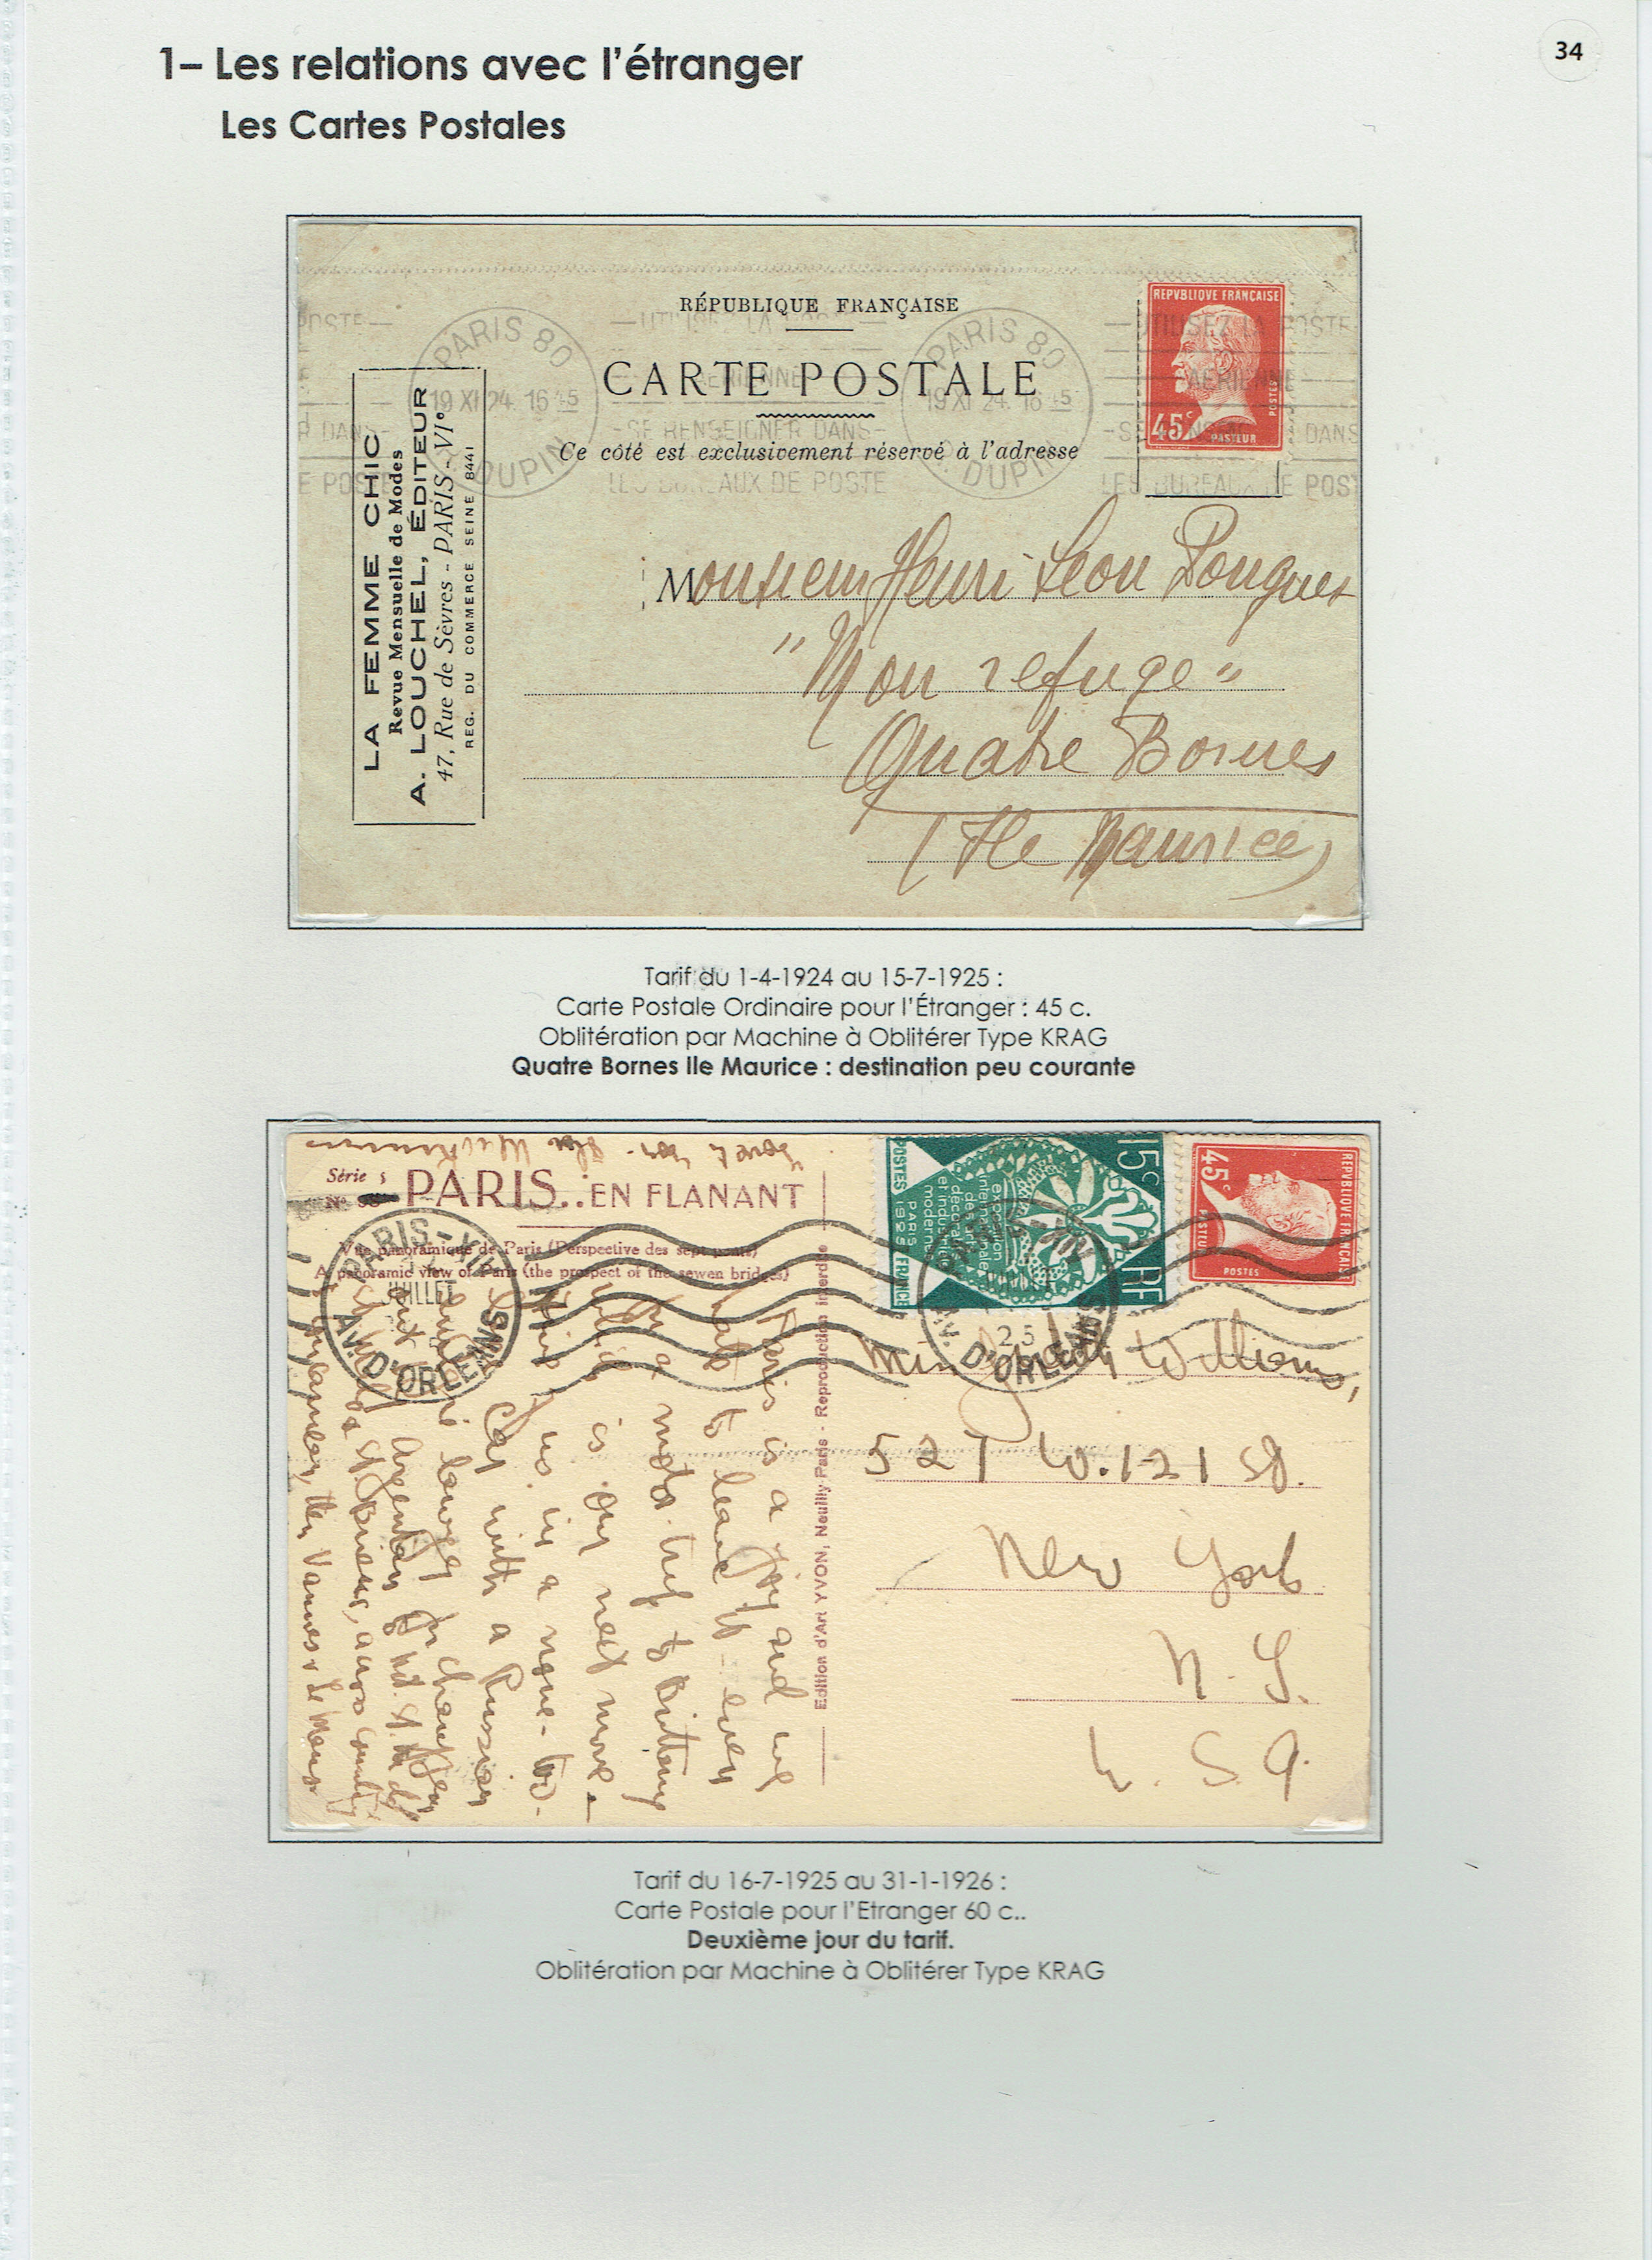 34
1– Les relations avec l'étranger
Les Cartes Postales
RÉPUBLIQUE FRANÇAISE
CARTE POSTALE
Ce côté est exclusivement réservé à l'adresse
REPVBLIQVE FRANÇAISE
POSTES
45c
PASTEUR
PARIS 80
19 XI 24 16 45
DUPIN
— UTILISEZ LA POSTE —
AERIENNE
— SE RENSEIGNER DANS —
LES BUREAUX DE POSTE
PARIS 80
19 XI 24 16 45
DUPIN
— UTILISEZ LA POSTE
AERIENNE
DANS
LES BUREAUX DE POST
LA FEMME CHIC
Revue Mensuelle de Modes
A. LOUCHEL, ÉDITEUR
47, Rue de Sèvres - PARIS-VIe
REG. DU COMMERCE SEINE 8441
Monsieur Henri Leon
"Mon refuge"
Quatre Bornes
(Ile Maurice)
Tarif du 1-4-1924 au 15-7-1925 :
Carte Postale Ordinaire pour l'Étranger : 45 c.
Oblitération par Machine à Oblitérer Type KRAG
Quatre Bornes Ile Maurice : destination peu courante
Série
PARIS.. EN FLANANT
Vue panoramique de Paris (Perspective des sept ponts)
A panoramic view of Paris (the prospect of the sewen bridges)
PARIS-XIV
JUILLET
AV. D'ORLEANS
Edition d'Art YVON, Neuilly-Paris - Reproduction interdite
15c
POSTES
FRANCE
RF
exposition
internationale
des arts
décoratifs
et industriels
modernes
PARIS
1925
REPVBLIQVE FRANÇAISE
45c
PASTEUR
POSTES
25
AV. D'ORLEANS
Paris is a joy and we
hate to leave it – even
for a motor trip to Brittany
which is our next move –
us in a nine-
car with a Russian
for chauffeur
Williams,
521 W. 121 St.
New York
N. Y.
U. S. A.
Tarif du 16-7-1925 au 31-1-1926 :
Carte Postale pour l'Etranger 60 c..
Deuxième jour du tarif.
Oblitération par Machine à Oblitérer Type KRAG